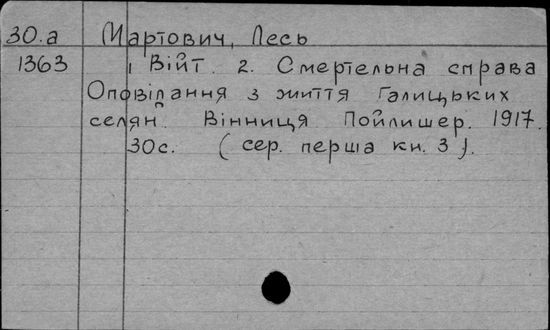 30.а Мартович, Лесь
1363 1 Війт. 2. Смертельна справа
Оповідання з життя Галицьких
селян. Вінниця Пойлишер. 1917.
30с. (сер. перша кн. 3).